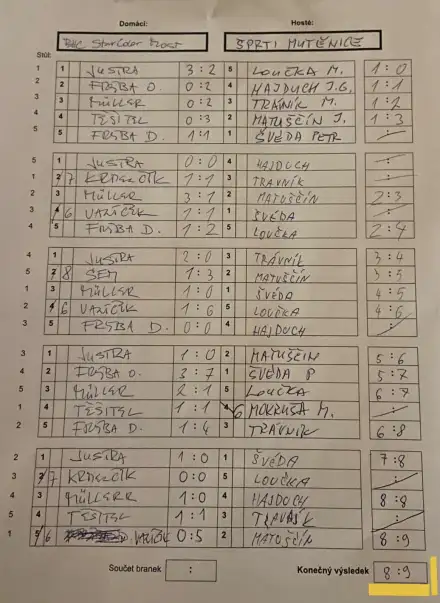 Domácí: Hosté:
BHC StarColor Most ŠPRTI MUTĚNICE
Stůl:
1 1 JUSTRA 3:2 5 LOUČKA M. 1:0
2 2 FRÝBA O. 0:2 4 HAJDUCH J.G. 1:1
3 3 MÜLLER 0:2 3 TRÁVNÍK M. 1:2
4 4 TĚŠITEL 0:3 2 MATUŠČÍN J. 1:3
5 5 FRÝBA D. 1:1 1 ŠVÉDA PETR :
5 1 JUSTRA 0:0 4 HAJDUCH :
1 7 KRAJČÍK 1:1 3 TRÁVNÍK :
2 3 MÜLLER 3:1 2 MATUŠČÍN 2:3
3 6 VAŘÍČEK 1:1 1 ŠVÉDA :
4 5 FRÝBA D. 1:2 5 LOUČKA 2:4
4 1 JUSTRA 2:0 3 TRÁVNÍK 3:4
5 8 SEM 1:3 2 MATUŠČÍN 3:5
1 3 MÜLLER 1:0 1 ŠVÉDA 4:5
2 6 VAŘÍČEK 1:6 5 LOUČKA 4:6
3 5 FRÝBA D. 0:0 4 HAJDUCH :
3 1 JUSTRA 1:0 2 MATUŠČÍN 5:6
4 2 FRÝBA O. 3:7 1 ŠVÉDA P 5:7
5 3 MÜLLER 2:1 5 LOUČKA 6:7
1 4 TĚŠITEL 1:1 6 MOKRUŠA M. :
2 5 FRÝBA D. 1:4 3 TRÁVNÍK 6:8
2 1 JUSTRA 1:0 1 ŠVÉDA 7:8
3 7 KRAJČÍK 0:0 5 LOUČKA :
4 3 MÜLLER 1:0 4 HAJDUCH 8:8
5 4 TĚŠITEL 1:1 3 TRÁVNÍK :
1 6 VAŘÍČEK 0:5 2 MATUŠČÍN 8:9
Součet branek : Konečný výsledek 8:9